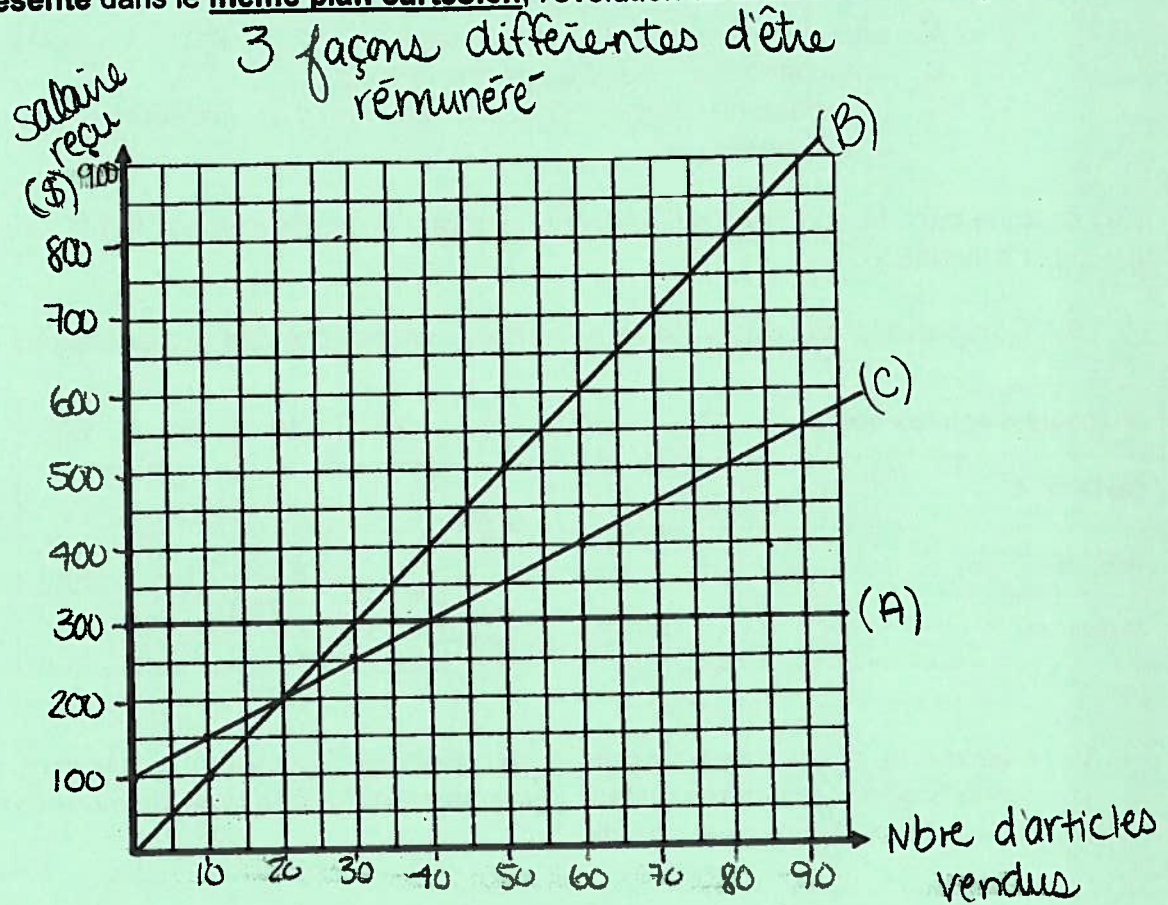 ésente dans le même plan cartésien, l'évolution
3 façons différentes d'être
rémunéré
salaire
reçu
($)
900
800
700
600
500
400
300
200
100
(B)
(C)
(A)
10 20 30 40 50 60 70 80 90
Nbre d'articles
vendus